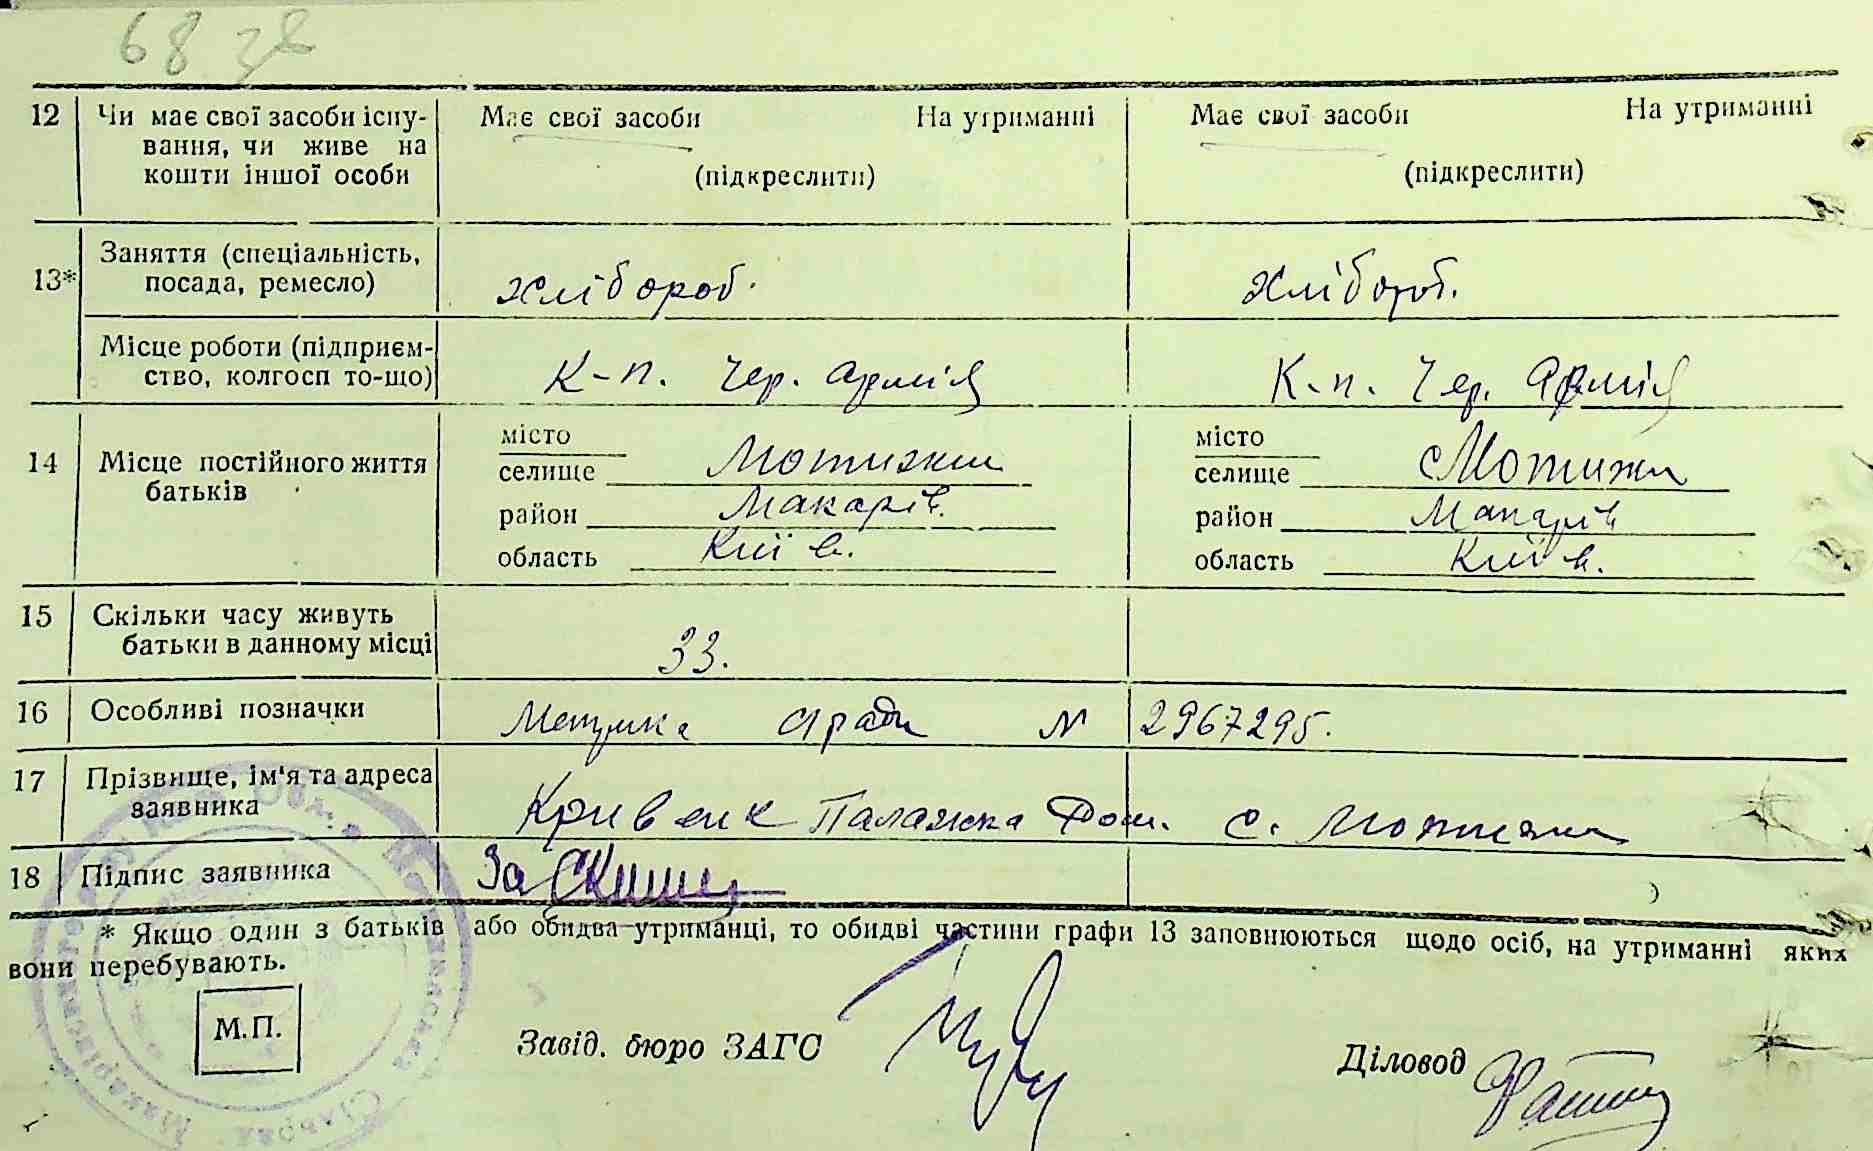 68 зв
12 Чи має свої засоби існу- Має свої засоби На утриманні Має свої засоби На утриманні
вання, чи живе на
кошти іншої особи (підкреслити) (підкреслити)
13* Заняття (спеціальність,
посада, ремесло) хлібороб. хлібороб.
Місце роботи (підприєм-
ство, колгосп то-що) К-п. Чер. Армія К-п. Чер. Армія
14 Місце постійного життя
батьків
місто
селище Мотижин
район Макарів.
область Київ.
місто
селище с Мотижин
район Макарів
область Київ.
15 Скільки часу живуть
батьки в данному місці 33.
16 Особливі позначки N 2967295.
17 Прізвище, ім'я та адреса
заявника Кривенк Палажка с. Мотижин
18 Підпис заявника За
* Якщо один з батьків або обидва утриманці, то обидві частини графи 13 заповнюються щодо осіб, на утриманні яких
вони перебувають.
М.П.
Завід. бюро ЗАГС
Діловод